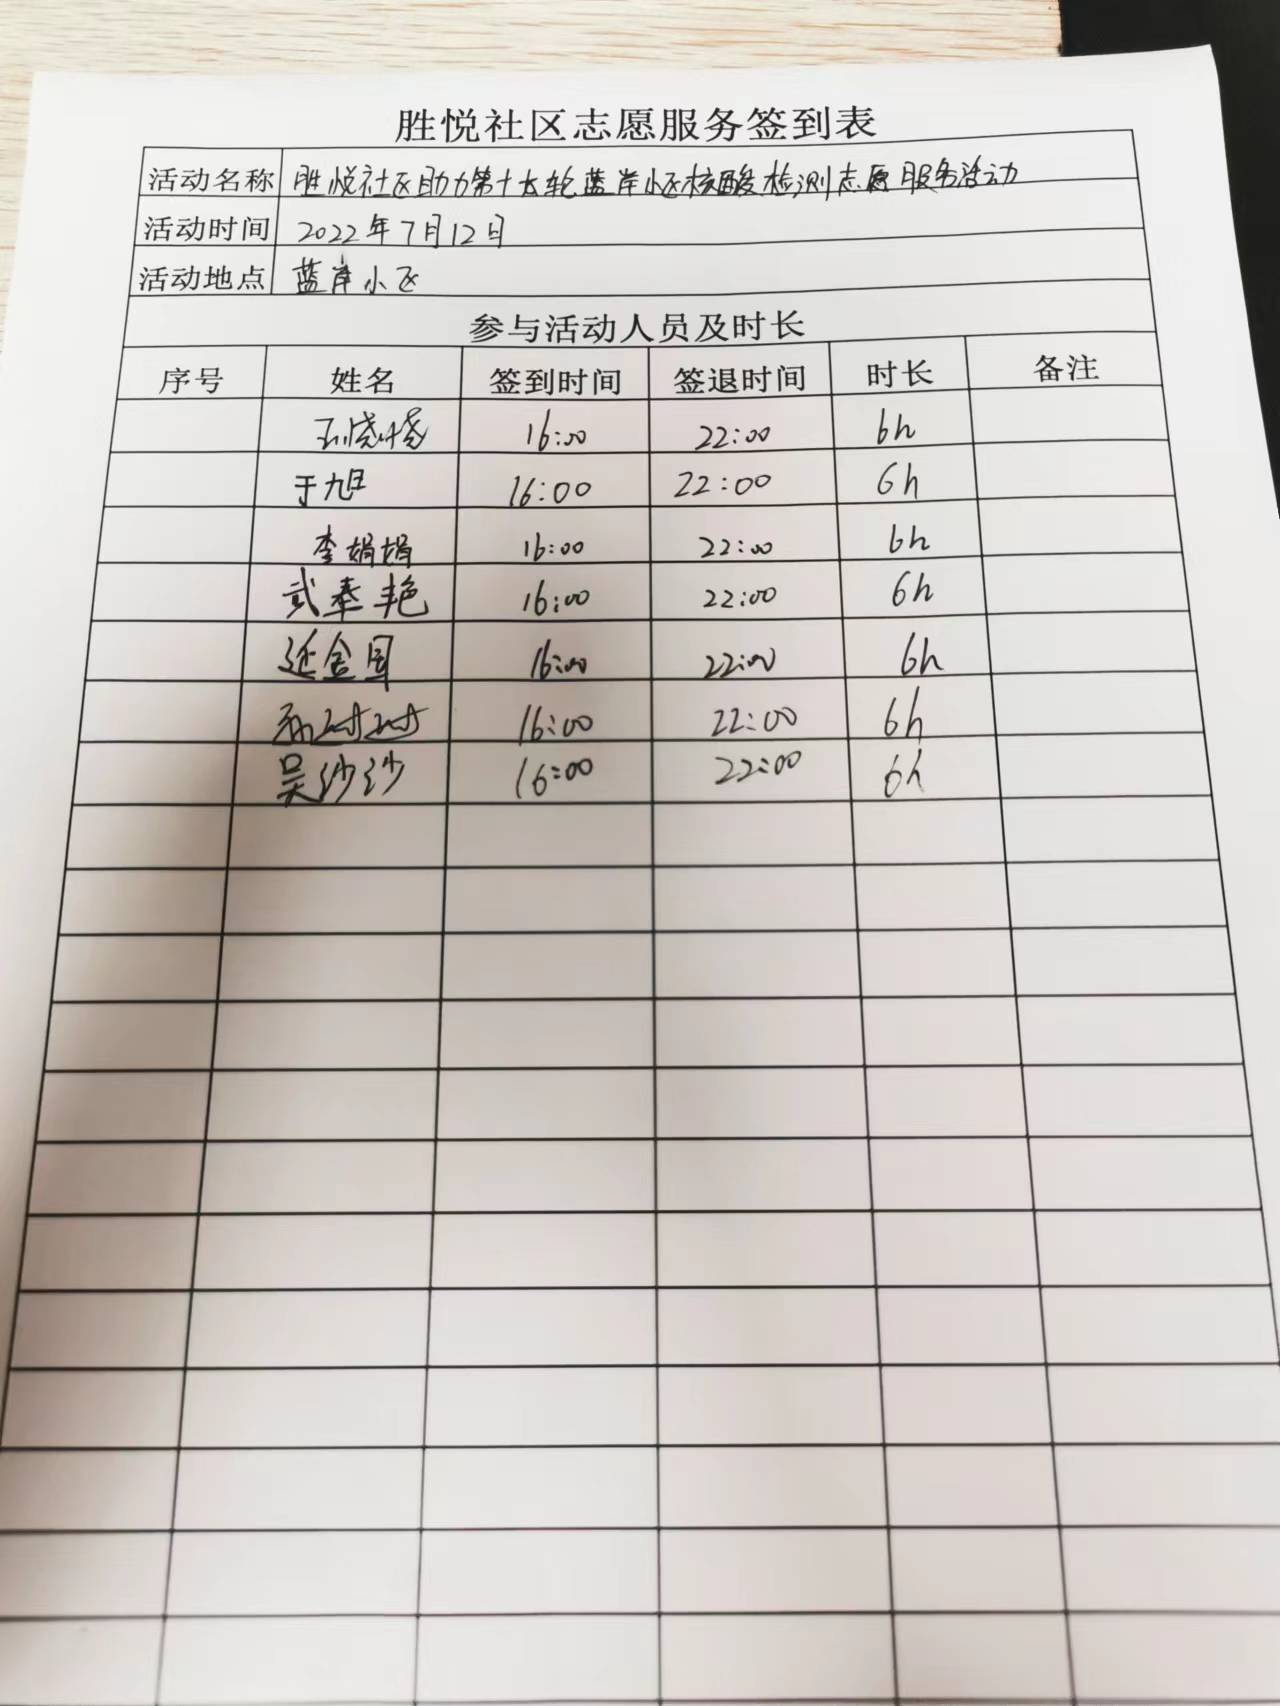 胜悦社区志愿服务签到表
活动名称 胜悦社区助力第十七轮蓝岸小区核酸检测志愿服务活动
活动时间 2022年7月12日
活动地点 蓝岸小区
参与活动人员及时长
序号 姓名 签到时间 签退时间 时长 备注
16:00 22:00 6h
于旭 16:00 22:00 6h
李娟娟 16:00 22:00 6h
武奉艳 16:00 22:00 6h
16:00 22:00 6h
16:00 22:00 6h
吴沙沙 16:00 22:00 6h